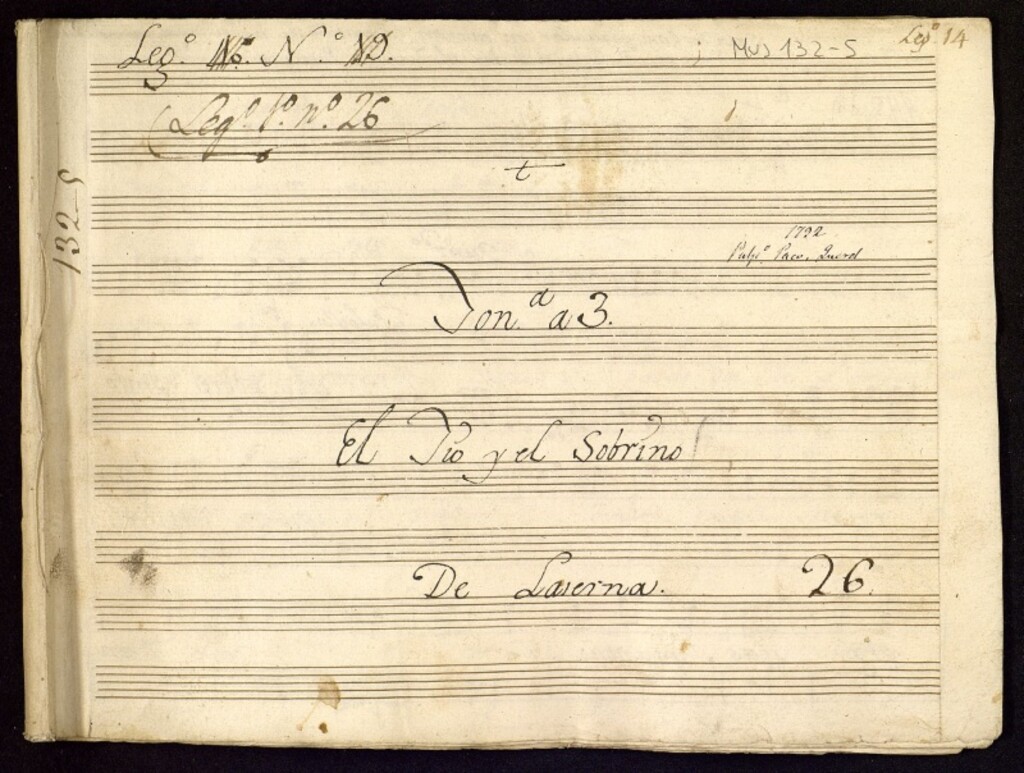 Leg.º N.º
Mus 132-5
Leg.º 14
Leg.º 1.º n.º 26
132-5
t
1792
Ton.ª a 3.
El Tio y el Sobrino
De Laserna. 26.